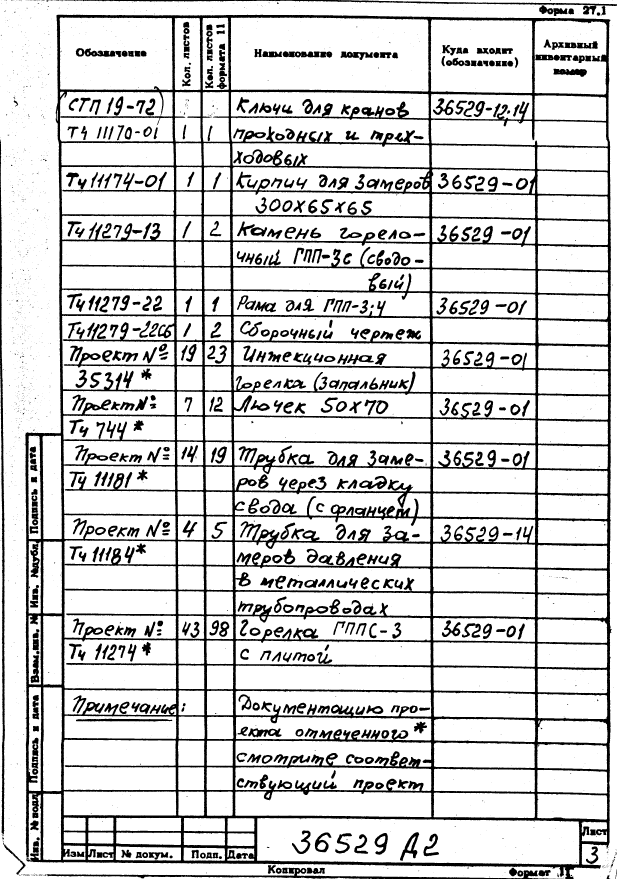 Форма 27.1
Обозначение Кол. листов Кол. листов формата 11 Наименование документа Куда входит (обозначение) Архивный инвентарный номер
(СТП 19-72) Ключи для кранов 36529-12;14
ТЧ 11170-01 1 1 проходных и трех-
ходовых
ТЧ 11174-01 1 1 Кирпич для замеров 36529-01
300х65х65
ТЧ 11279-13 1 2 Камень горело- 36529-01
чный ГПП-3с (сводо-
вый)
ТЧ 11279-22 1 1 Рама для ГПП-3;4 36529-01
ТЧ 11279-22СБ 1 2 Сборочный чертеж
Проект № 19 23 Инжекционная 36529-01
35314* горелка (запальник)
Проект № 7 12 Лючек 50х70 36529-01
ТЧ 744*
Проект № 14 19 Трубка для заме- 36529-01
ТЧ 11181* ров через кладку
свода (с фланцем)
Проект № 4 5 Трубка для за- 36529-14
ТЧ 11184* меров давления
в металлических
трубопроводах
Проект № 43 98 Горелка ГППС-3 36529-01
ТЧ 11274* с плитой
Примечание: Документацию про-
екта отмеченного*
смотрите соответ-
ствующий проект
Подпись и дата
Инв. № дубл.
Взам. инв. №
Подпись и дата
Инв. № подл.
Изм Лист № докум. Подп. Дата
36529 Д2
Лист
3
Копировал
Формат 11